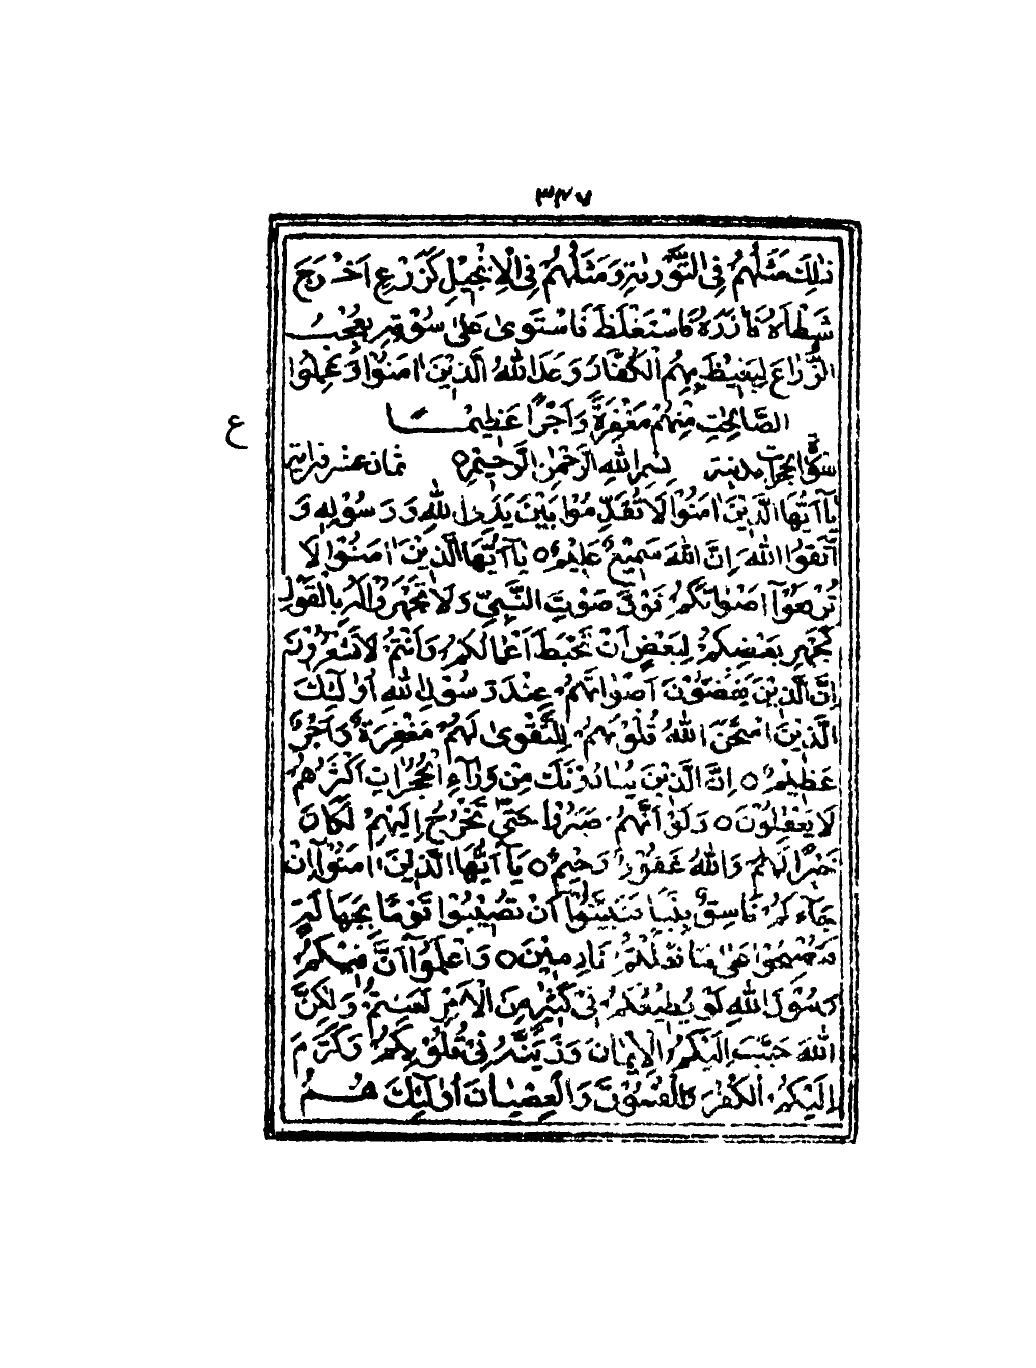 ٣٤٧
ذٰلِكَ مَثَلُهُمْ فِي التَّوْرٰىةِ وَمَثَلُهُمْ فِي الْاِنْجِيْلِ كَزَرْعٍ اَخْرَجَ
شَطْاَهُ فَاٰزَرَهُ فَاسْتَغْلَظَ فَاسْتَوٰى عَلٰى سُوْقِهٖ يُعْجِبُ
الزُّرَّاعَ لِيَغِيْظَ بِهِمُ الْكُفَّارَ وَعَدَ اللّٰهُ الَّذِيْنَ اٰمَنُوْا وَعَمِلُوا
الصَّالِحٰتِ مِنْهُمْ مَغْفِرَةً وَاَجْرًا عَظِيْمًا
ع
سُوْرَةُ الحجرات مدنية بِسْمِ اللّٰهِ الرَّحْمٰنِ الرَّحِيْمِ ثمان عشر اية
يٰآ اَيُّهَا الَّذِيْنَ اٰمَنُوْا لَا تُقَدِّمُوْا بَيْنَ يَدَيِ اللّٰهِ وَرَسُوْلِهٖ وَ
اتَّقُوا اللّٰهَ اِنَّ اللّٰهَ سَمِيْعٌ عَلِيْمٌ ○ يٰآ اَيُّهَا الَّذِيْنَ اٰمَنُوْا لَا
تَرْفَعُوْآ اَصْوَاتَكُمْ فَوْقَ صَوْتِ النَّبِيِّ وَلَا تَجْهَرُوْا لَهٗ بِالْقَوْلِ
كَجَهْرِ بَعْضِكُمْ لِبَعْضٍ اَنْ تَحْبَطَ اَعْمَالُكُمْ وَاَنْتُمْ لَا تَشْعُرُوْنَ
اِنَّ الَّذِيْنَ يَغُضُّوْنَ اَصْوَاتَهُمْ عِنْدَ رَسُوْلِ اللّٰهِ اُولٰٓئِكَ
الَّذِيْنَ امْتَحَنَ اللّٰهُ قُلُوْبَهُمْ لِلتَّقْوٰى لَهُمْ مَغْفِرَةٌ وَاَجْرٌ
عَظِيْمٌ ○ اِنَّ الَّذِيْنَ يُنَادُوْنَكَ مِنْ وَرَآءِ الْحُجُرَاتِ اَكْثَرُهُمْ
لَا يَعْقِلُوْنَ ○ وَلَوْ اَنَّهُمْ صَبَرُوْا حَتّٰى تَخْرُجَ اِلَيْهِمْ لَكَانَ
خَيْرًا لَهُمْ وَاللّٰهُ غَفُوْرٌ رَحِيْمٌ ○ يٰآ اَيُّهَا الَّذِيْنَ اٰمَنُوْآ اِنْ
جَآءَكُمْ فَاسِقٌ بِنَبَاٍ فَتَبَيَّنُوْآ اَنْ تُصِيْبُوْا قَوْمًا بِجَهَالَةٍ
فَتُصْبِحُوْا عَلٰى مَا فَعَلْتُمْ نَادِمِيْنَ ○ وَاعْلَمُوْآ اَنَّ فِيْكُمْ
رَسُوْلَ اللّٰهِ لَوْ يُطِيْعُكُمْ فِيْ كَثِيْرٍ مِنَ الْاَمْرِ لَعَنِتُّمْ وَلٰكِنَّ
اللّٰهَ حَبَّبَ اِلَيْكُمُ الْاِيْمَانَ وَزَيَّنَهٗ فِيْ قُلُوْبِكُمْ وَكَرَّهَ
اِلَيْكُمُ الْكُفْرَ وَالْفُسُوْقَ وَالْعِصْيَانَ اُولٰٓئِكَ هُمُ